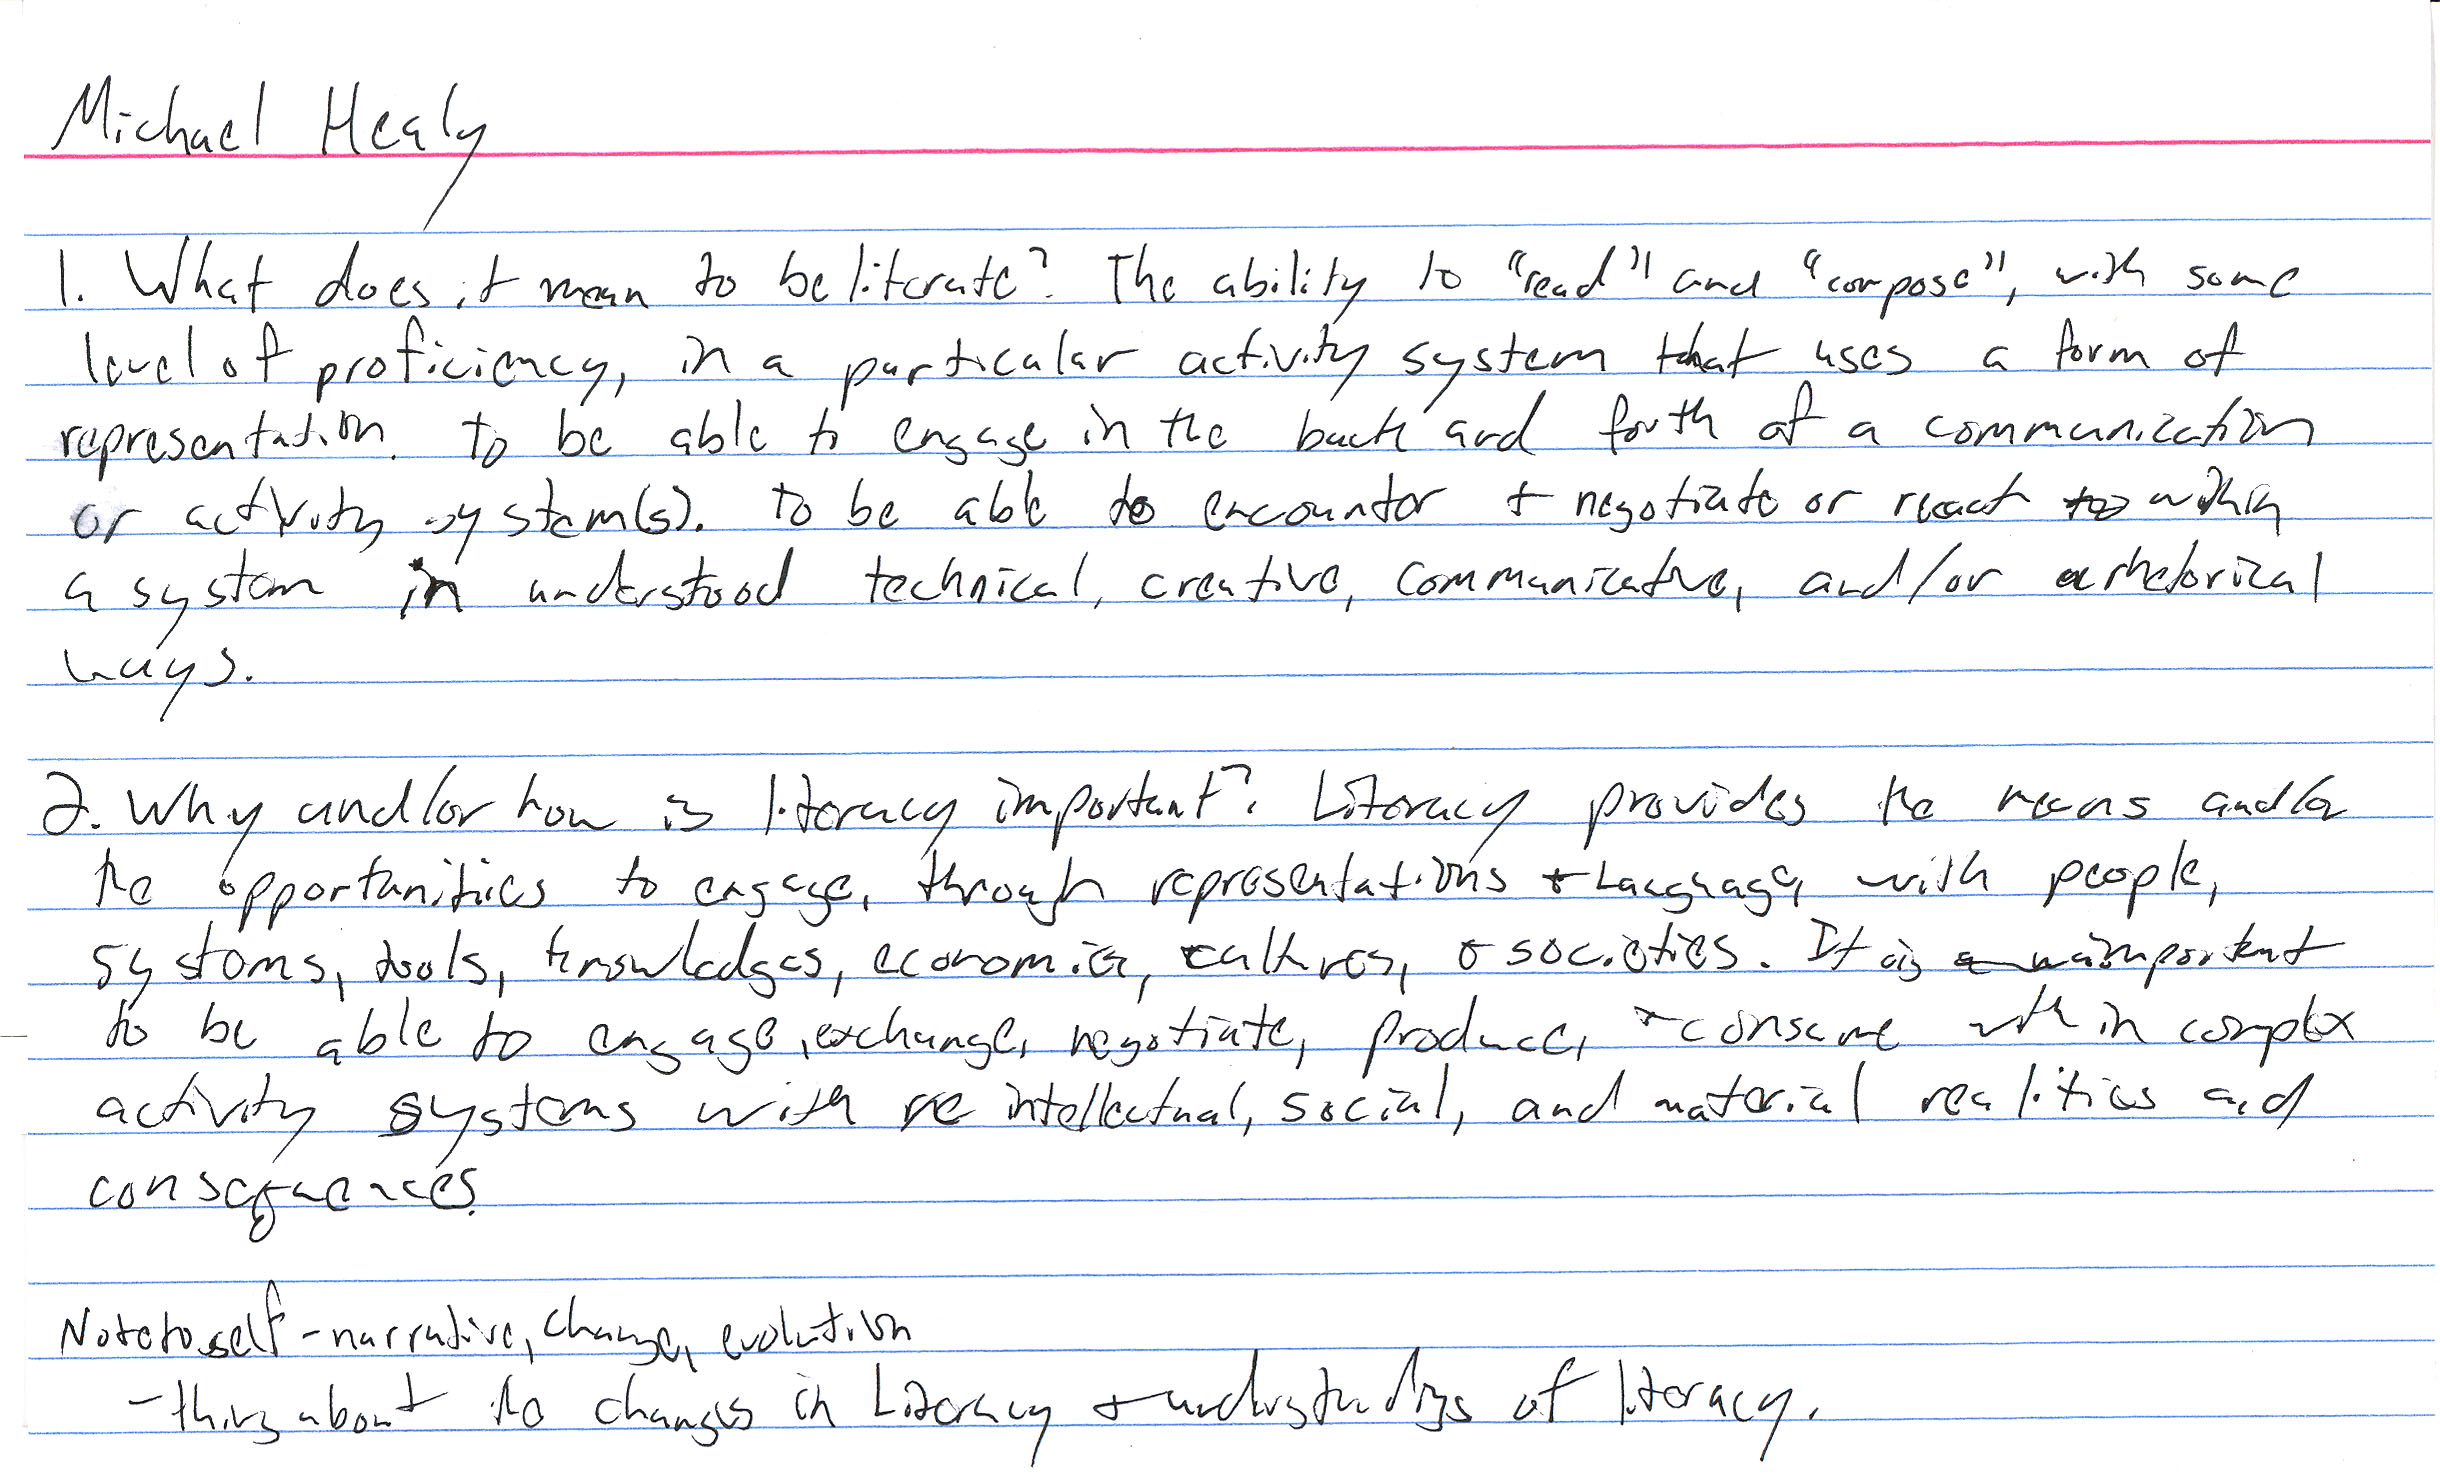 Michael Healy
1. What does it mean to be literate? The ability to "read" and "compose", with some
level of proficiency, in a particular activity system that uses a form of
representation. To be able to engage in the back and forth of a communication
or activity system(s). To be able to encounter + negotiate or react within
a system in understood technical, creative, communicative, and/or rhetorical
ways.
2. Why and/or how is literacy important? Literacy provides the means and/or
the opportunities to engage, through representations + Language, with people,
systems, tools, knowledges, economies, cultures, + societies. It is important
to be able to engage, exchange, negotiate, produce, + consume within complex
activity systems with re intellectual, social, and material realities and
consequences.
Note to self - narrative, change, evolution
- thing about the changes in Literacy + understandings of literacy.